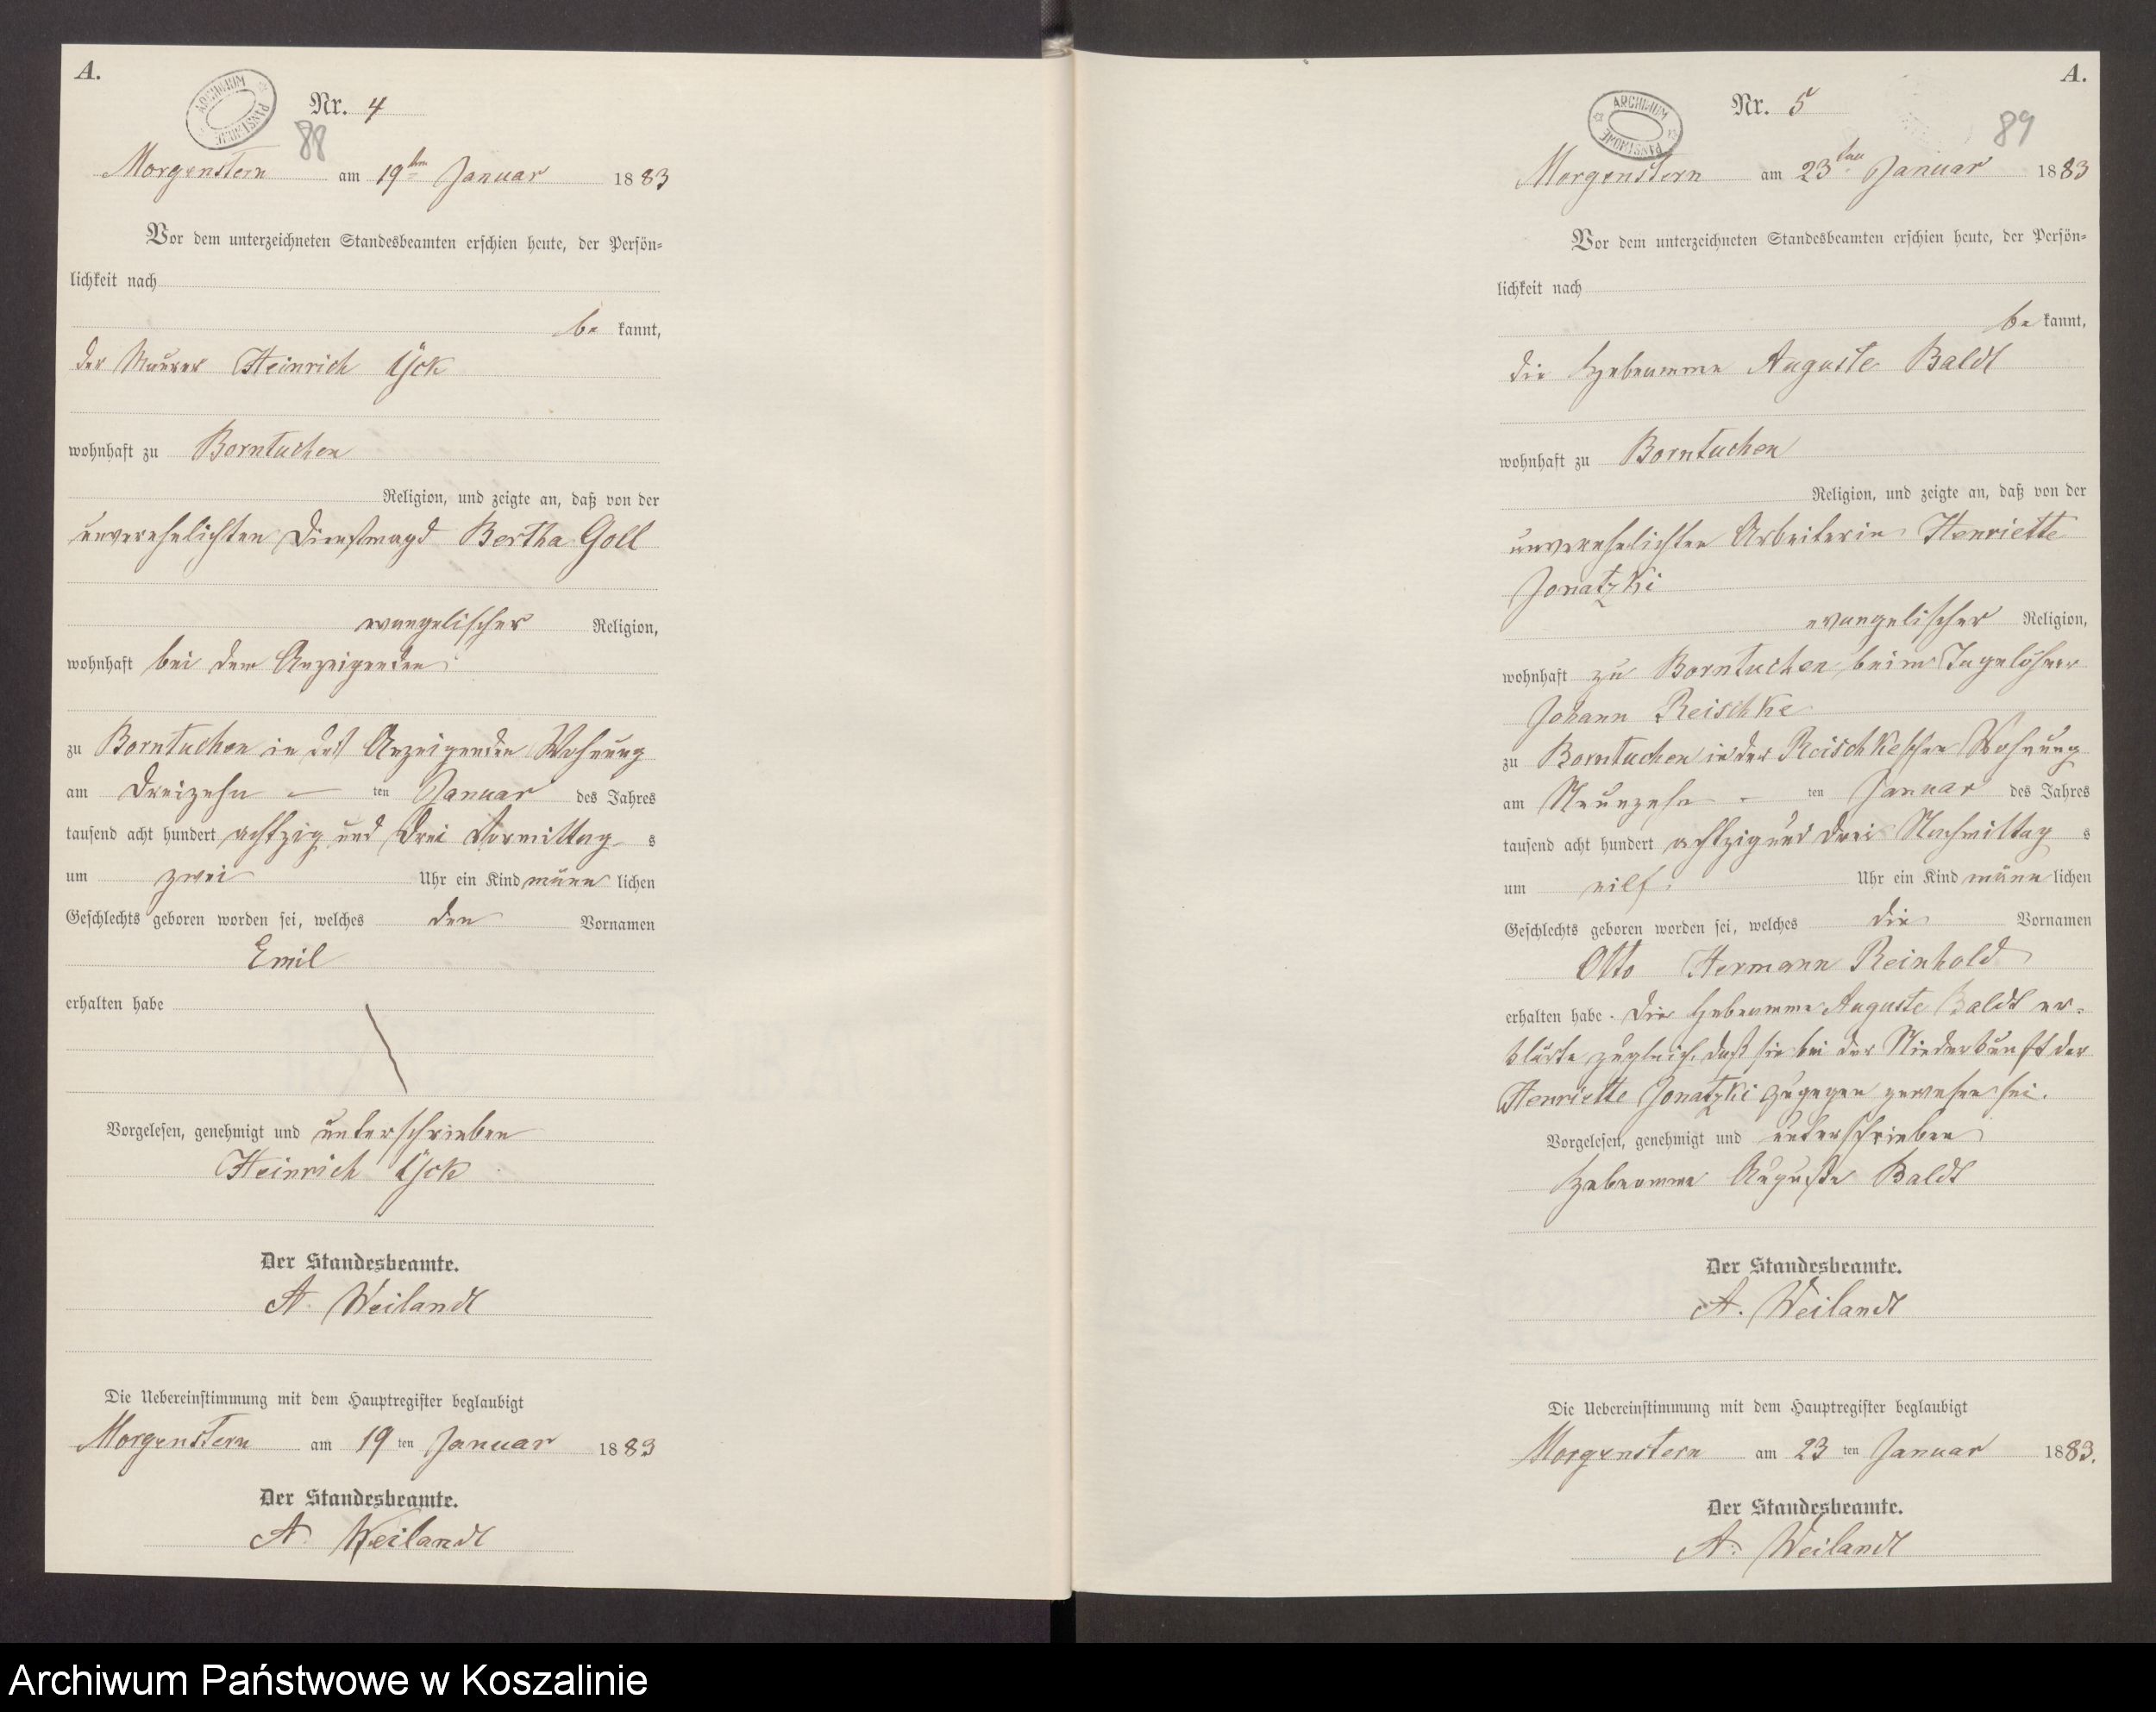 A.
ARCHIWUM PAŃSTWOWE
Nr. 4
88
Morgenstern am 19ten Januar 1883
Vor dem unterzeichneten Standesbeamten erschien heute, der Persön=
lichkeit nach
be kannt,
der Maurer Heinrich
wohnhaft zu Borntuchen
Religion, und zeigte an, daß von der
unverehelichten Dienstmagd Bertha Goll
evangelischer Religion,
wohnhaft bei dem Anzeigenden
zu Borntuchen in des Anzeigenden Wohnung
am dreizehn ten Januar des Jahres
tausend acht hundert achtzig und drei Vormittag s
um zwei Uhr ein Kind männ lichen
Geschlechts geboren worden sei, welches den Vornamen
Emil
erhalten habe
Vorgelesen, genehmigt und unterschrieben
Heinrich
Der Standesbeamte.
A. Weilandt
Die Uebereinstimmung mit dem Hauptregister beglaubigt
Morgenstern am 19 ten Januar 1883
Der Standesbeamte.
A. Weilandt
A.
ARCHIWUM PAŃSTWOWE
Nr. 5
89
Morgenstern am 23ten Januar 1883
Vor dem unterzeichneten Standesbeamten erschien heute, der Persön=
lichkeit nach
be kannt,
die Hebeamme Auguste Baldt
wohnhaft zu Borntuchen
Religion, und zeigte an, daß von der
unverehelichten Arbeiterin Henriette
Jonatzki
evangelischer Religion,
wohnhaft zu Borntuchen beim Tagelöhner
Johann Reischke
zu Borntuchen in der Reischkeschen Wohnung
am Neunzehn ten Januar des Jahres
tausend acht hundert achtzig und drei Nachmittag s
um eilf Uhr ein Kind männ lichen
Geschlechts geboren worden sei, welches die Vornamen
Otto Hermann Reinhold
erhalten habe. Die Hebeamme Auguste Baldt er=
klärte zugleich, daß sie bei der Niederkunft der
Henriette Jonatzki zugegen gewesen sei.
Vorgelesen, genehmigt und unterschrieben
Hebeamme Auguste Baldt
Der Standesbeamte.
A. Weilandt
Die Uebereinstimmung mit dem Hauptregister beglaubigt
Morgenstern am 23 ten Januar 1883.
Der Standesbeamte.
A. Weilandt
Archiwum Państwowe w Koszalinie